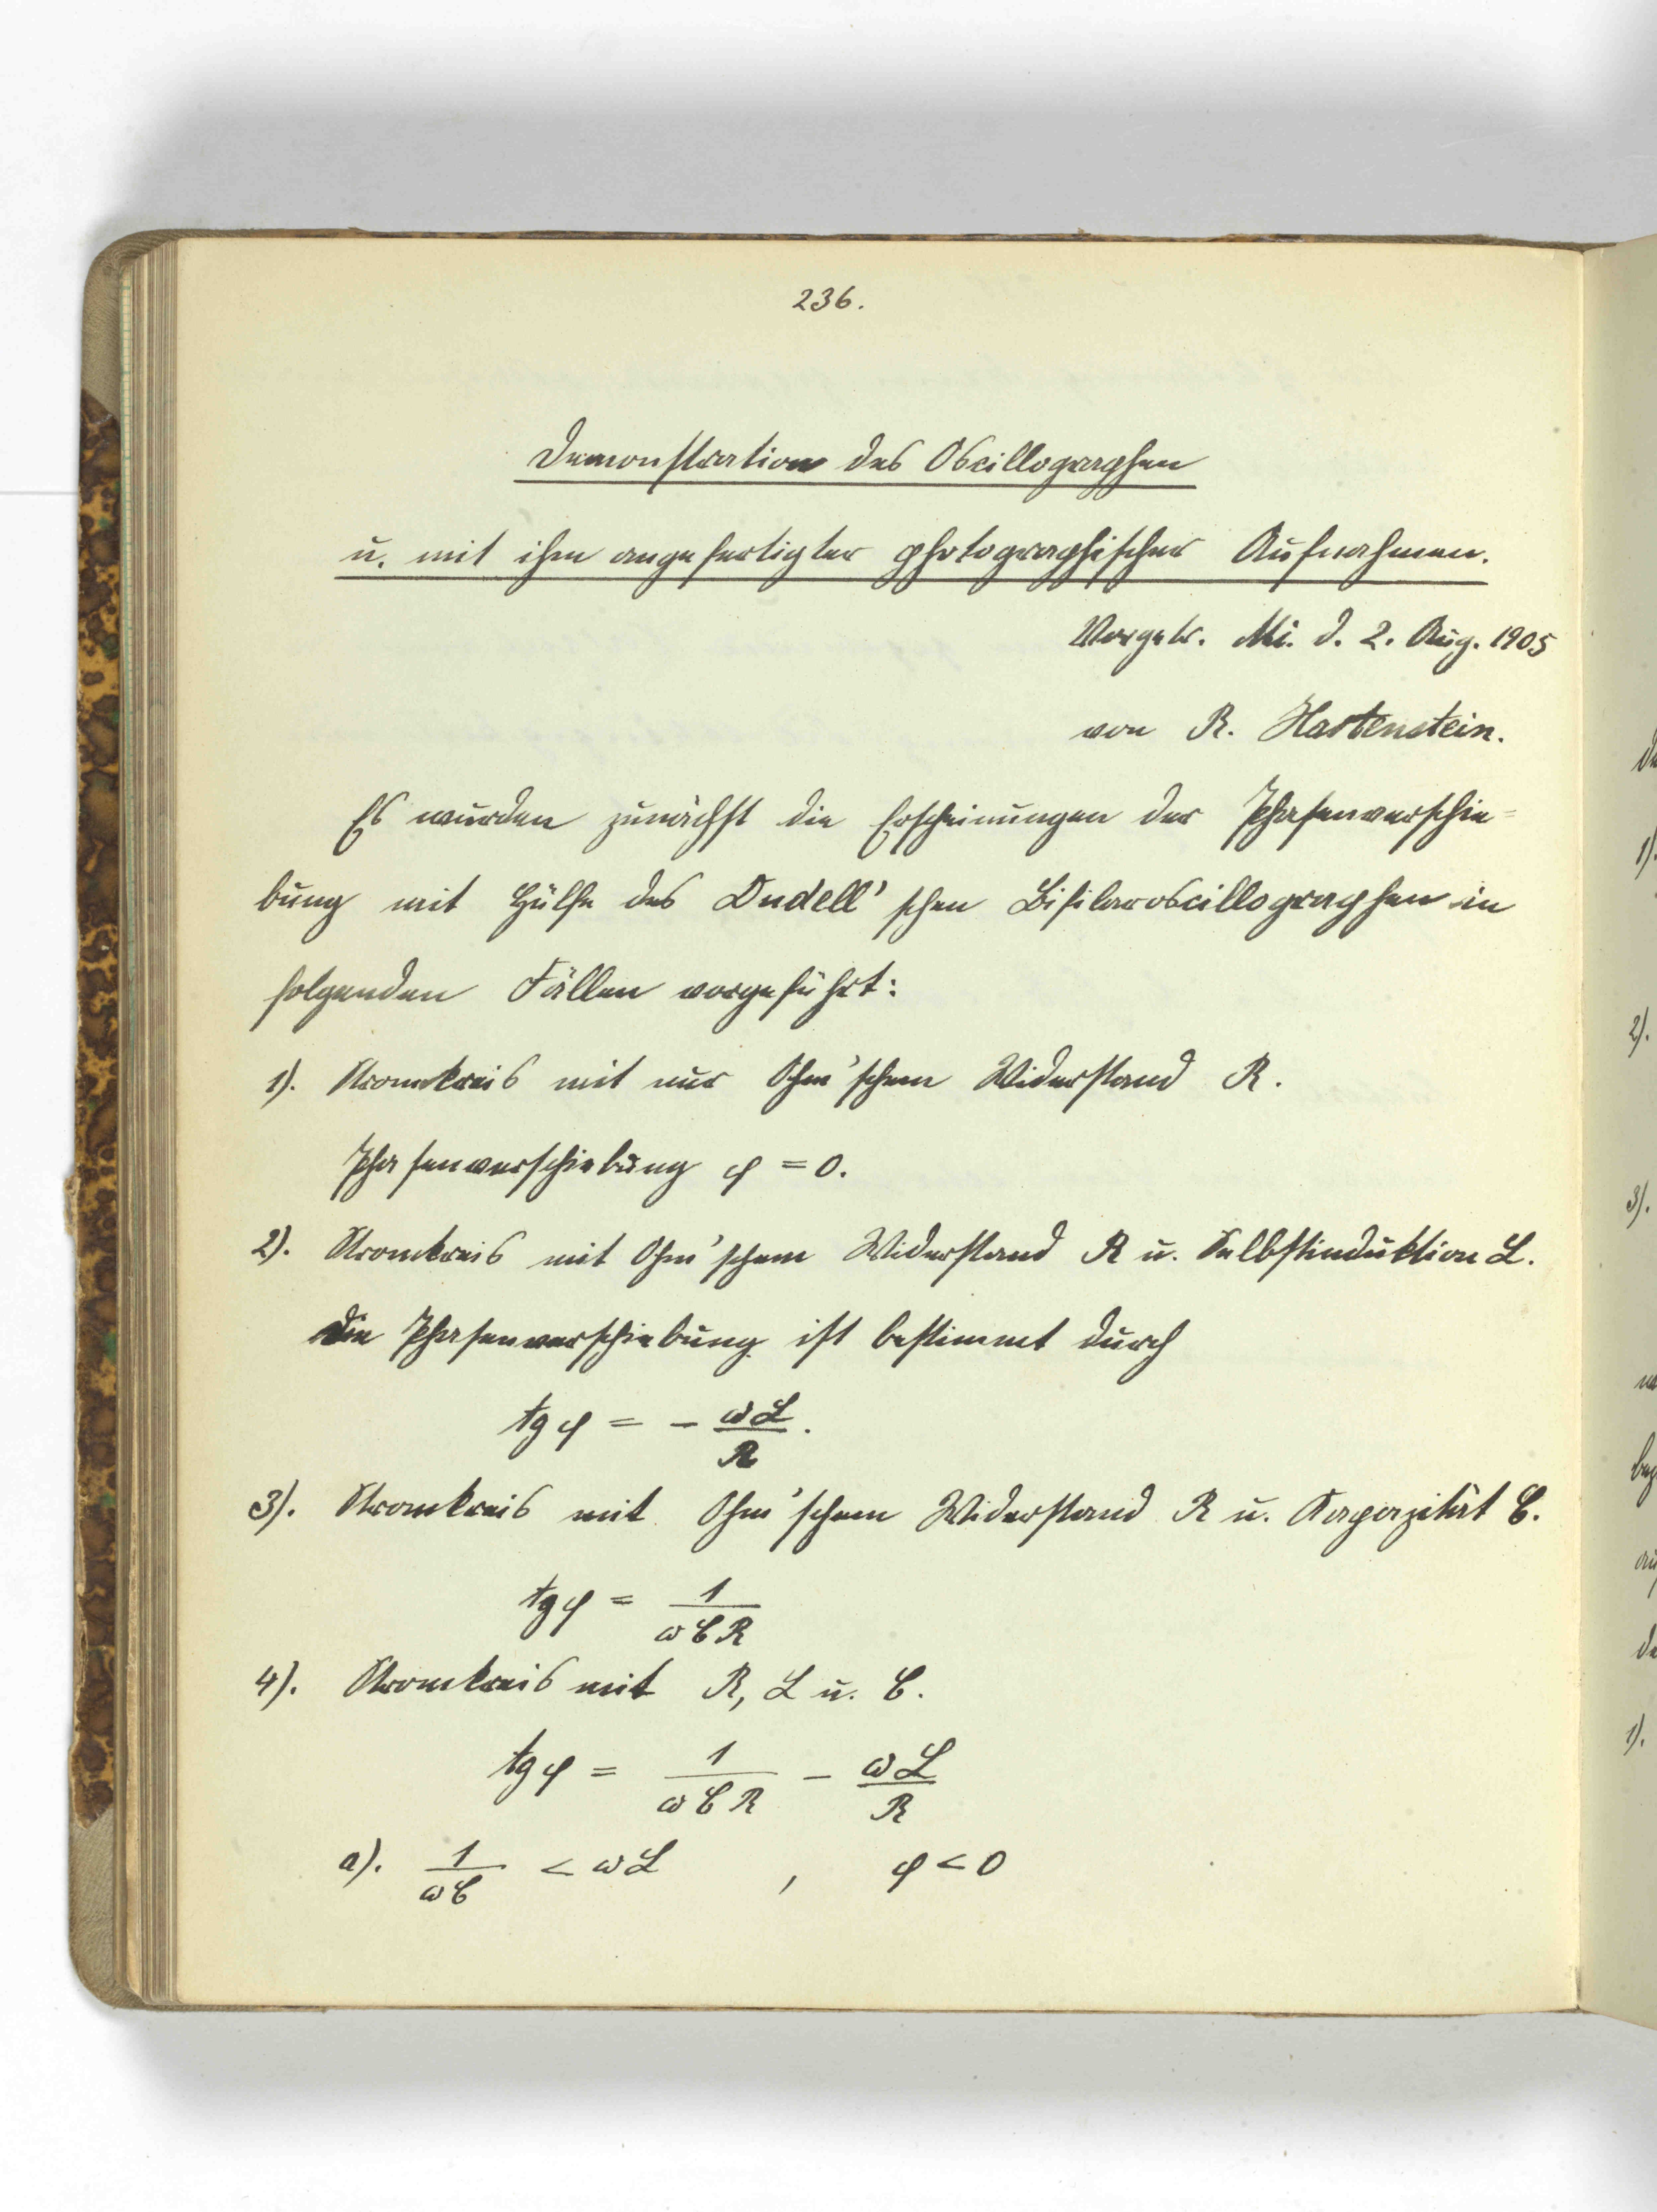 236.
Demonstration des Oscillographen
u. mit ihm angefertigter photographischer Aufnahmen.
Vorgetr. Mi. d. 2. Aug. 1905
von R. Hartenstein.
Es wurden zunächst die Erscheinungen der Phasenverschie=
bung mit Hülfe des Dudell'schen Bifilaroscillographen in
folgenden Fällen vorgeführt:
1). Stromkreis mit nur Ohm'schem Widerstand R.
Phasenverschiebung φ = 0.
2). Stromkreis mit Ohm'schem Widerstand R u. Selbstinduktion L.
Die Phasenverschiebung ist bestimmt durch
tg φ = - ωL/R.
3). Stromkreis mit Ohm'schem Widerstand R u. Kapazität C.
tg φ = 1/ωCR
4). Stromkreis mit R, L u. C.
tg φ = 1/ωCR - ωL/R
a). 1/ωC < ωL , φ < 0